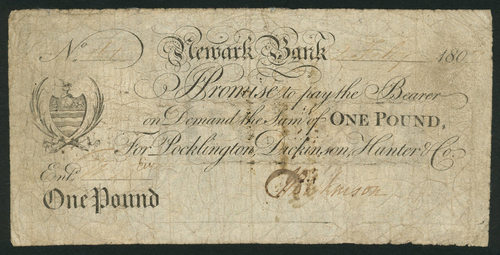 No
Newark Bank
180
I Promise to pay the Bearer
on Demand the Sum of ONE POUND,
For Pocklington Dickinson, Hunter & Co.
Entd
One Pound
Dickinson